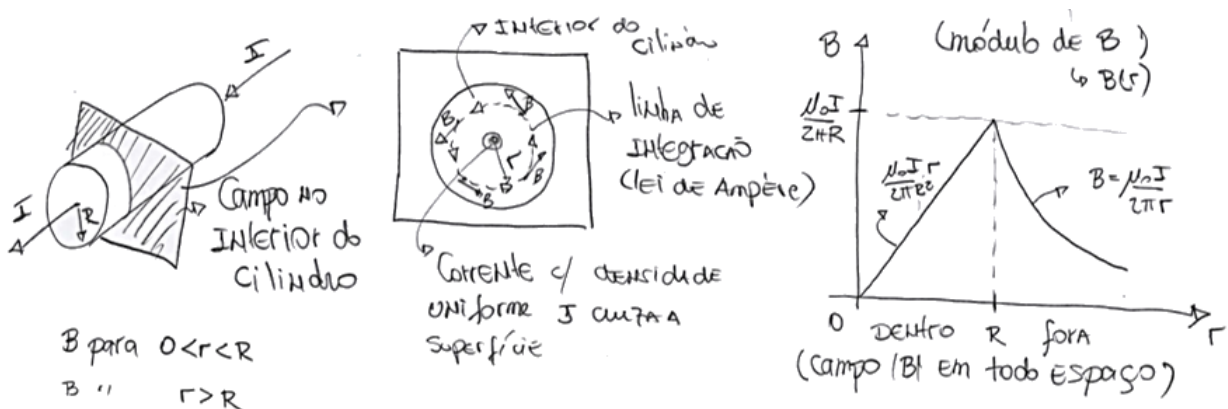 I
I
R
Campo no
Interior do
cilindro
B para 0<r<R
B " r>R
Interior do
cilindro
B
B
B
B
B
r
linha de
Integração
(lei de Ampère)
Corrente c/ densidade
uniforme J cruza a
superfície
B
(módulo de B)
↳ B(r)
μ₀I
2πR
μ₀I r
2πR²
B = μ₀I
2πr
0 DENTRO R fora r
(campo |B| em todo Espaço)